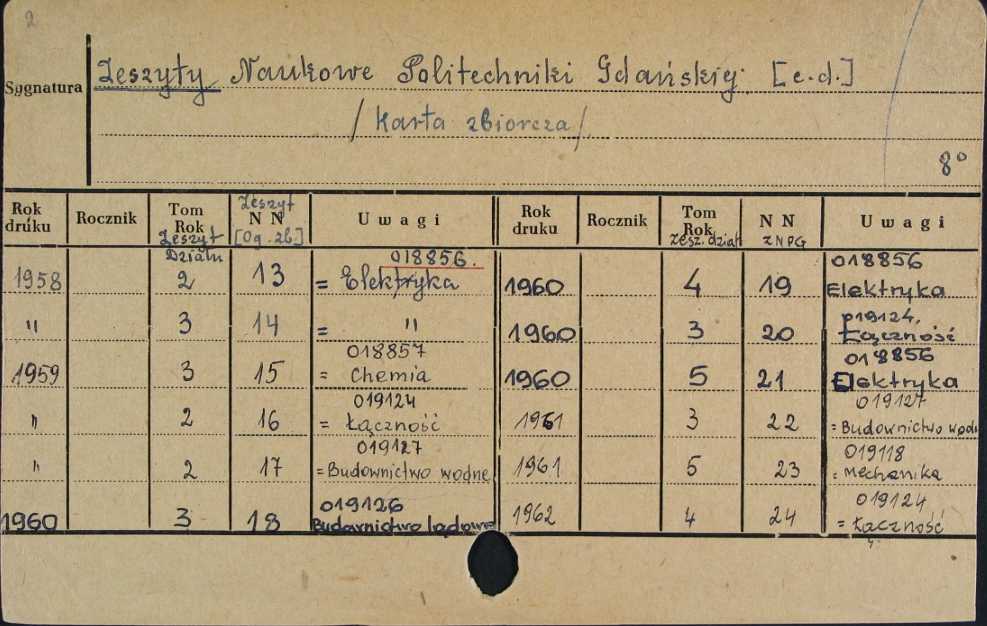 2
Sygnatura
Zeszyty Naukowe Politechniki Gdańskiej. [c.d.]
/Karta zbiorcza/
8°
Rok druku Rocznik Tom Rok Zeszyt Działu Zeszyt N N [Og. zb] Uwagi Rok druku Rocznik Tom Rok zesz. dział N N ZNPG Uwagi
1958 2 13 018856. = Elektryka 1960 4 19 018856 Elektryka
" 3 14 = " 1960 3 20 019124, Łączność
1959 3 15 018857 = Chemia 1960 5 21 018856 Elektryka
" 2 16 019124 = Łączność 1961 3 22 019127 = Budownictwo wodn
" 2 17 019127 = Budownictwo wodne 1961 5 23 019118 = Mechanika
1960 3 18 019126 Budownictwo lądowe 1962 4 24 019124 = Łączność